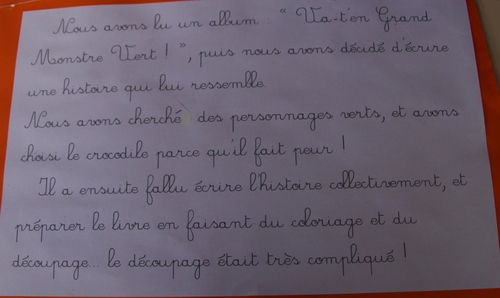 Nous avons lu un album : “ Va-t'en Grand
Monstre Vert ! ”, puis nous avons décidé d'écrire
une histoire qui lui ressemble.
Nous avons cherché des personnages verts, et avons
choisi le crocodile parce qu'il fait peur !
Il a ensuite fallu écrire l'histoire collectivement, et
préparer le livre en faisant du coloriage et du
découpage... le découpage était très compliqué !